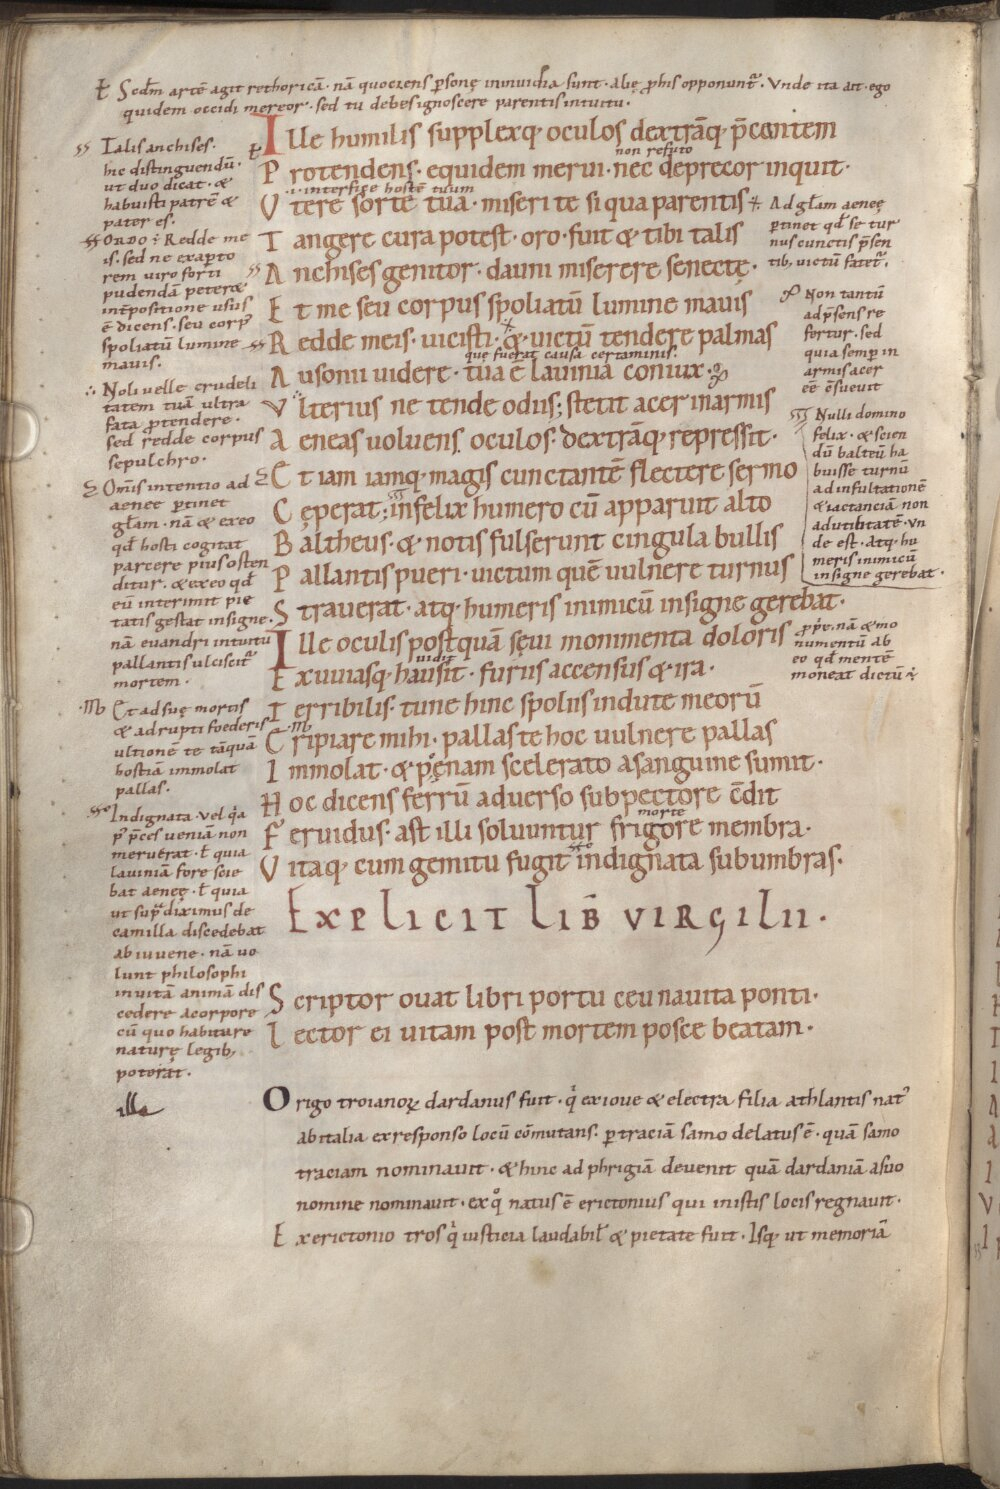 Scdm artē agit rethoricā. nā quociens psonę ininuidia sunt. alię phis opponunt̄. Vnde ita ait. ego
quidem occidi mereor. sed tu debes ignoscere parentis intuitu.
Ille humilis supplexq; oculos dextrāq; p̄cantem
non refuto
Protendens. equidem merui. nec deprecor inquit.
.i. interfice hostē tuum
Vtere sorte tua. miseri te si qua parentis
Tangere cura potest. oro. fuit & tibi talis
Anchises genitor. dauni miserere senectę.
Et me seu corpus spoliatū lumine mauis
Redde meis. uicisti. & uictū tendere palmas
que fuerat causa certaminis.
Ausonii uidere. tua ē lauinia coniux.
Vlterius ne tende odiis; stetit acer inarmis
Aeneas uoluens oculos. dextrāq; repressit.
Et iam iamq; magis cunctantē flectere sermo
Cęperat; infelix humero cū apparuit alto
Baltheus. & notis fulserunt cingula bullis
Pallantis pueri. uictum quē uulnere turnus
Strauerat. atq; humeris inimicū insigne gerebat.
Ille oculis postquā sęui monimenta doloris
uidit
Exuuiasq; hausit. furiis accensus & ira.
Terribilis. tune hinc spoliis indute meorū
Eripiare mihi. pallas te hoc uulnere pallas
Immolat. & pęnam scelerato asanguine sumit.
Hoc dicens ferrū aduerso subpectore c̄dit
morte
Feruidus. ast illi soluuntur frigore membra.
Vitaq; cum gemitu fugit indignata subumbras.
Explicit lib̄ virgilii.
Scriptor ouat libri portu ceu nauita ponti.
Lector ei uitam post mortem posce beatam.
Origo troianorꝝ dardanus fuit. q̇ exioue & electra filia athlantis nat'
abitalia exresponso locū cōmutans. ptraciā samo delatus ē. quā samo
traciam nominauit. & hinc ad phrigiā deuenit quā dardaniā asuo
nomine nominauit. exq̊ natus ē erictonius qui inistis locis regnauit.
Exerictonio tros q̇ iusticia laudabil' & pietate fuit. Isq; ut memoriā
Talis anchises.
hic distinguendū.
ut duo dicat. &
habuisti patrē &
pater es.
Ordo ÷ Redde me
is. sed ne exapto
rem uiro forti
pudendā peterę
int̄positione usus
ē dicens. seu corp'
spoliatū lumine
mauis.
Noli uelle crudeli
tatem tuā ultra
fata ptendere.
sed redde corpus
sepulchro.
Om̄is intentio ad
aenee ptinet
głam. nā & exeo
qd̄ hosti cogitat
parcere pius osten
ditur. & exeo qd̄
eū interimit pie
tatis gestat insigne.
nā euandri intuitū
pallantis ulciscit̄
mortem.
Et ad suę mortis
& adrupti foederis
ultionē te tāquā
hostiā immolat
pallas.
Indignata. Vel q̇a
p' p̄ces ueniā non
meruerat. ł quia
lauiniā fore scie
bat aeneę. ł quia
ut sup̄ diximus de
camilla discedebat
abiuuene. nā uo
lunt philosophi
inuitā animā dis
cedere acorpore
cū quo habitare
naturę legib;
poterat.
illa
Ad głam aeneę
ptinet qd̄ se tur
nus cunctis p̄sen
tib; uictū fatet̄.
Non tantū
adp̄sens re
fertur. sed
quia semp in
armis acer
eē c̄sueuit
Nulli domino
felix. & scien
dū balteū ha
buisse turnū
ad insultationē
& iactanciā non
adutilitatē. Vn
de est. atq; hu
meris inimicū
insigne gerebat.
p̄p̄e. nā & mo
numentū ab
eo qd̄ mentē
moneat dictū ÷